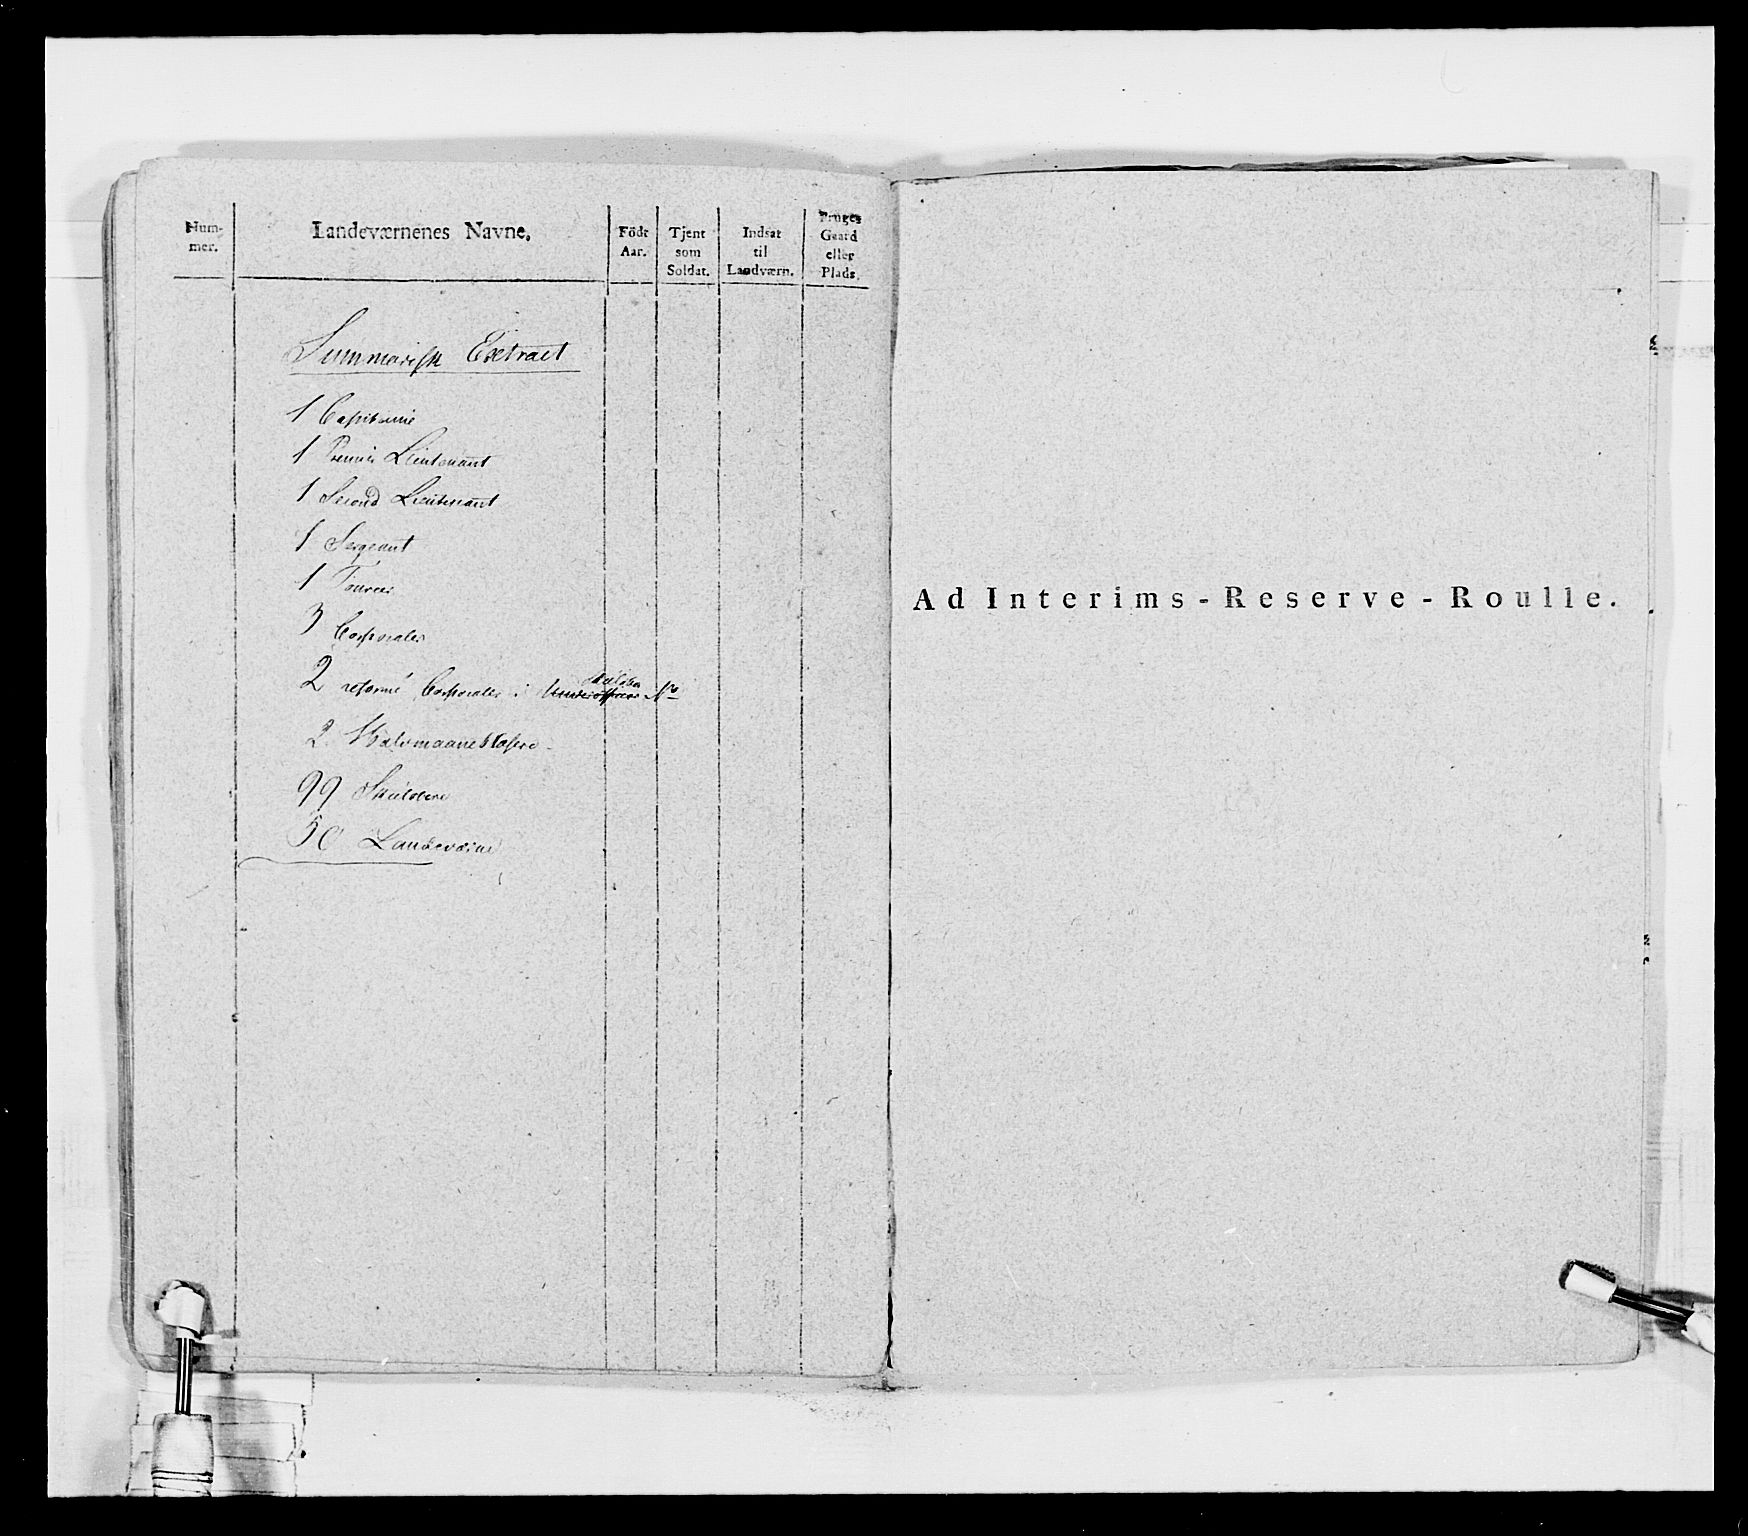 Num-
mer.
Landeværnenes Navne.
Födt
Aar.
Tjent
som
Soldat.
Indsat
til
Landværn.
Bruges
Gaard
eller
Plads.
Summarisk Extract
1 Capitaine
1 Premie Lieutenant
1 Second Lieutenant
1 Sergeant
1 Fourier
3 Corporaler
2 reformé Corporaler i Underofficeer No
2 Halvmaaneblæsere
99 Skieldere
50 Landeværne
Ad Interims-Reserve-Roulle.